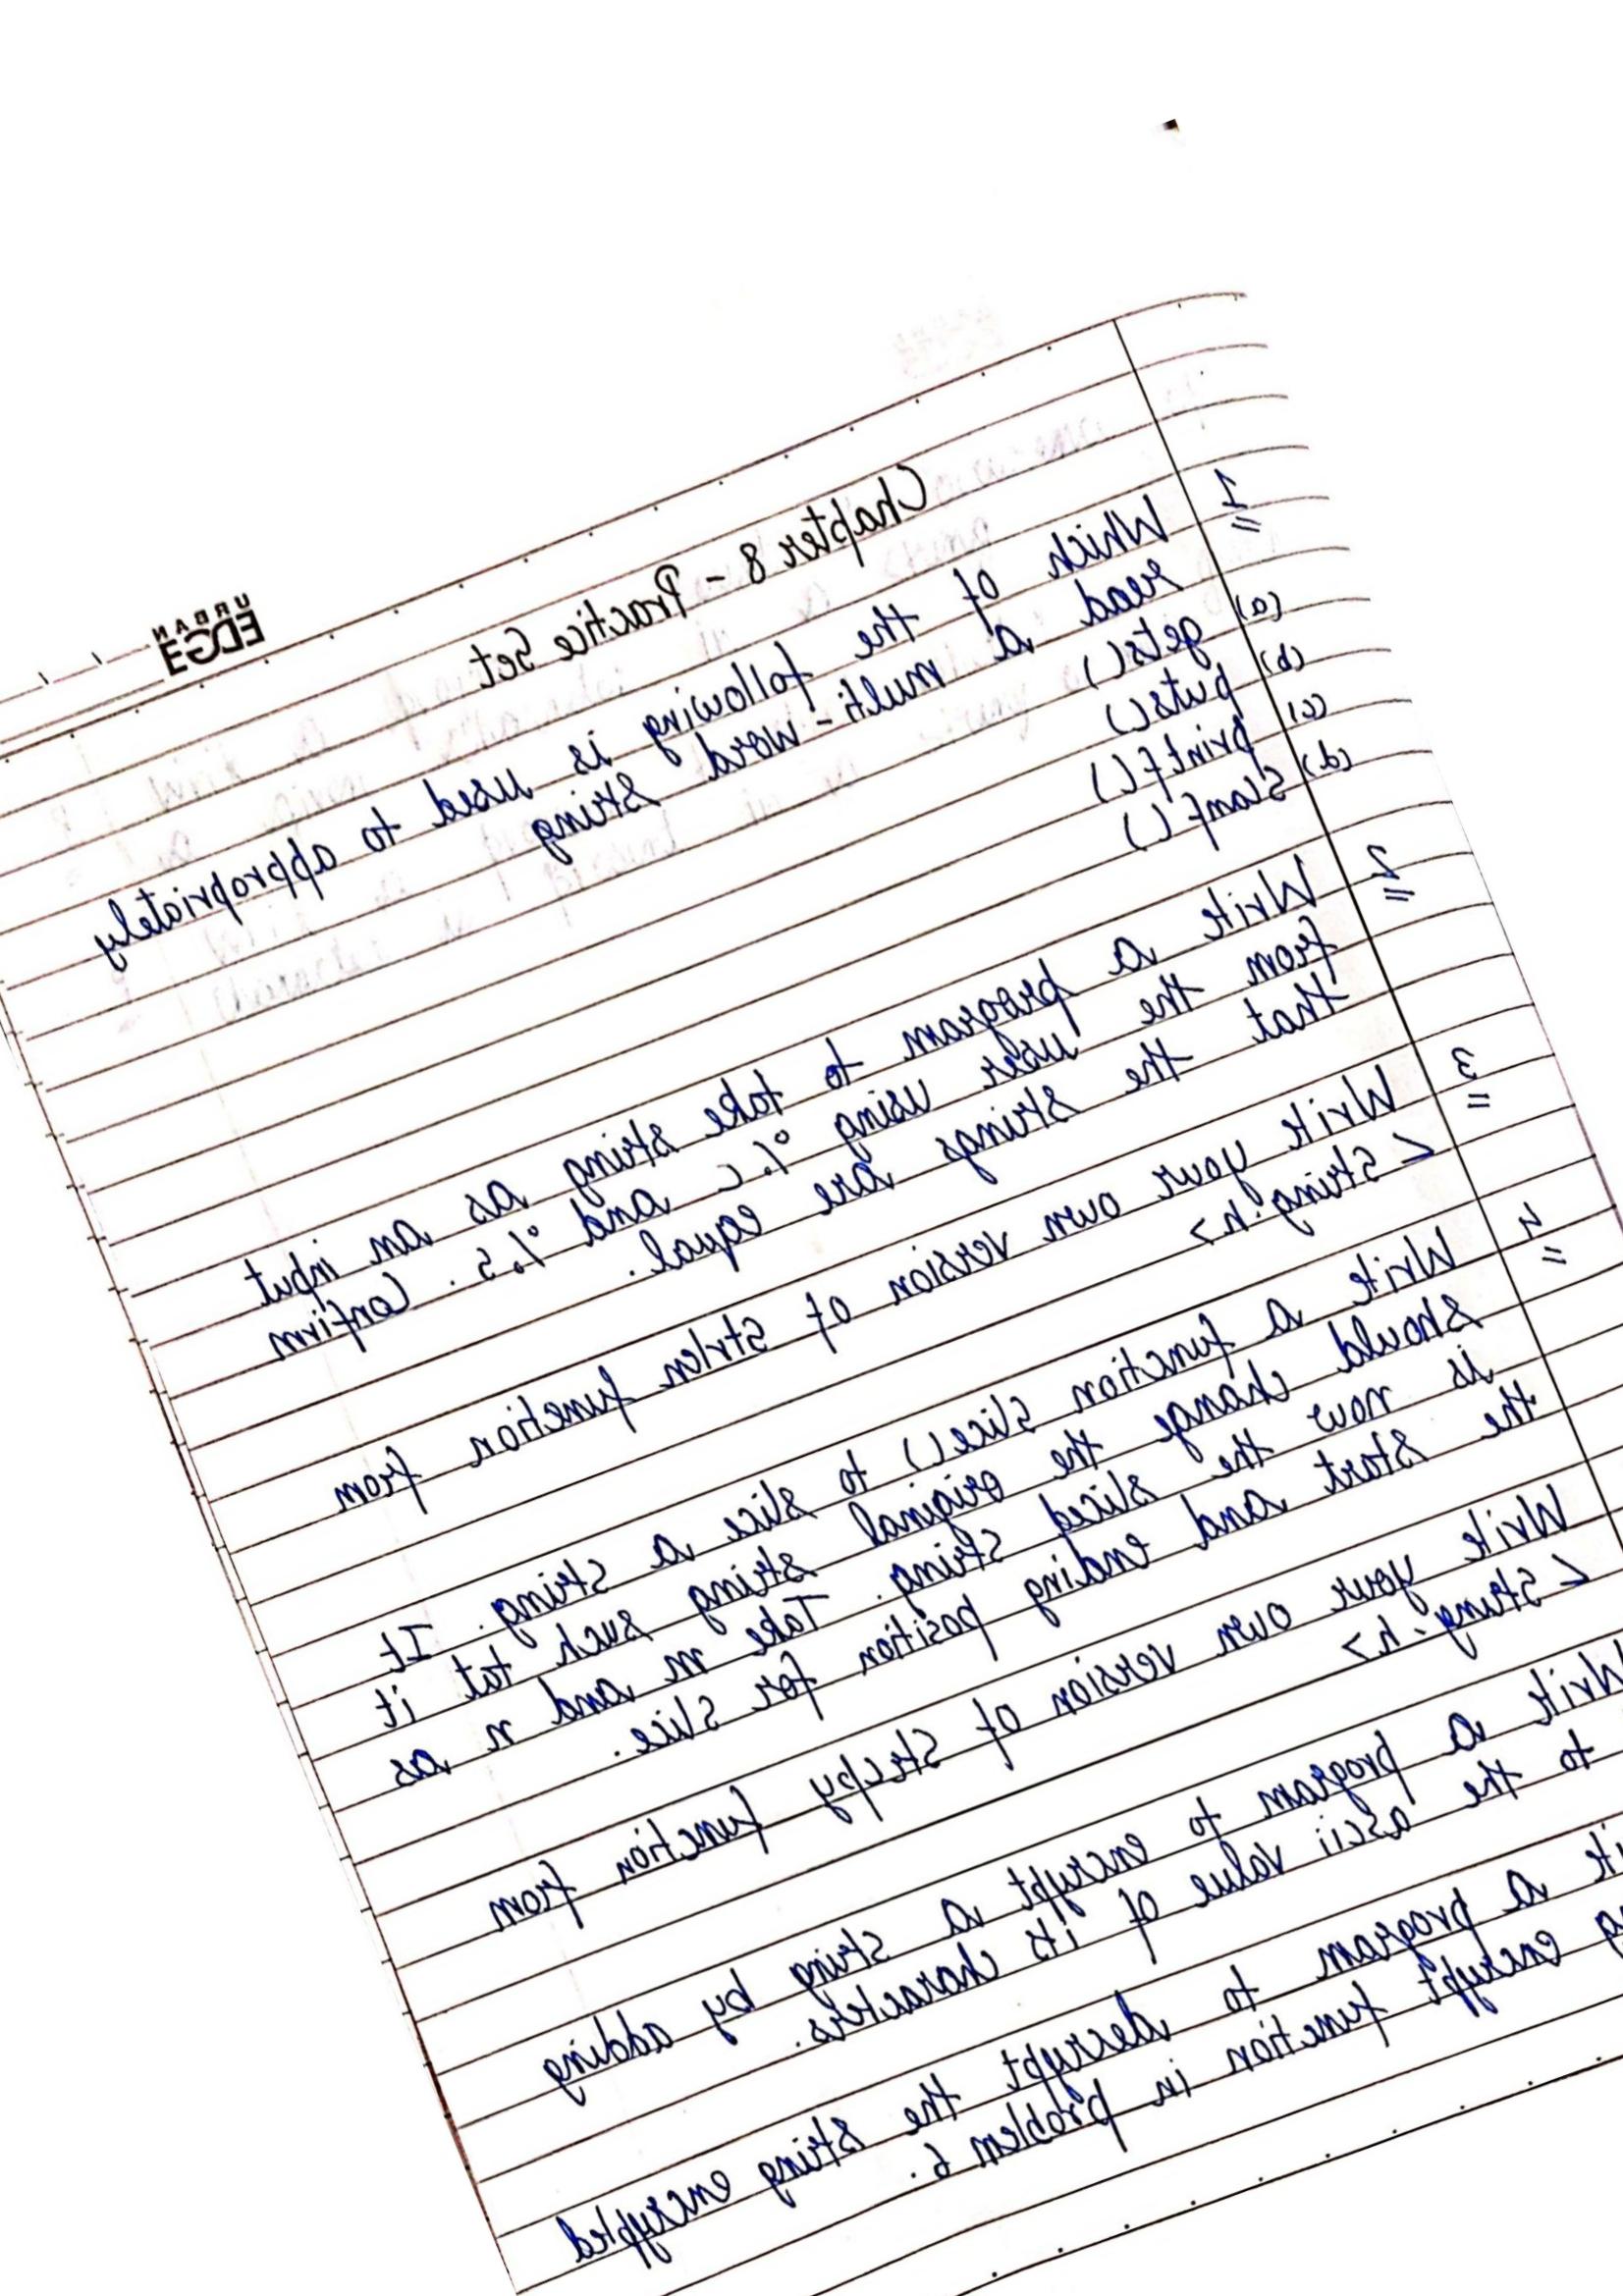 URBAN
EDGE
Chapter 8 - Practice Set
1 Which of the following is used to appropriately
read a multi-word string
(a) gets()
(b) puts()
(c) printf()
(d) Scanf()
2 Write a program to take string as an input
from the user using %c and %s. Confirm
that the strings are equal.
3 Write your own version of strlen function from
<string.h>
4 Write a function slice() to slice a string. It
should change the original string such tat it
is now the sliced string. Take m and n as
the start and ending position for slice.
Write your own version of strcpy function from
<string.h>
Write a program to encrypt a string by adding
to the ascii value of its characters.
a program to decrypt the string encrypted
encrypt function in problem 6.